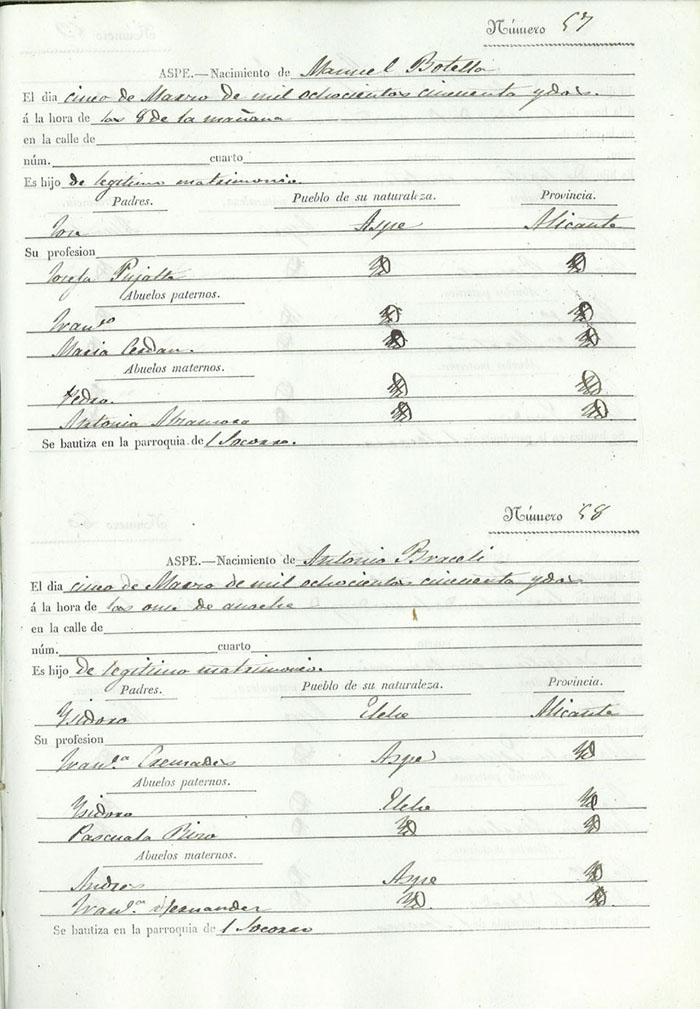 Número 57
ASPE.—Nacimiento de Manuel Botella
El dia cinco de Marzo de mil ochocientos cincuenta y dos.
á la hora de las 8 de la mañana
en la calle de
núm. cuarto
Es hijo de legitimo matrimonio.
Padres. Pueblo de su naturaleza. Provincia.
Jose Aspe Alicante
Su profesion
Josefa Pujalte Yd Yd
Abuelos paternos.
Franco Yd Yd
Maria Cerdan. Yd Yd
Abuelos maternos.
Pedro. Yd Yd
Antonia Yd Yd
Se bautiza en la parroquia de l Socorro.
Número 58
ASPE.—Nacimiento de Antonio
El dia cinco de Marzo de mil ochocientos cincuenta y dos
á la hora de las once de anoche
en la calle de
núm. cuarto
Es hijo de legitimo matrimonio.
Padres. Pueblo de su naturaleza. Provincia.
Ysidoro Elche Alicante
Su profesion
Franca Cremades Aspe Yd
Abuelos paternos.
Ysidoro Elche Yd
Pascuala Yd Yd
Abuelos maternos.
Andres Aspe Yd
Franca Hernandez Yd Yd
Se bautiza en la parroquia de l Socorro